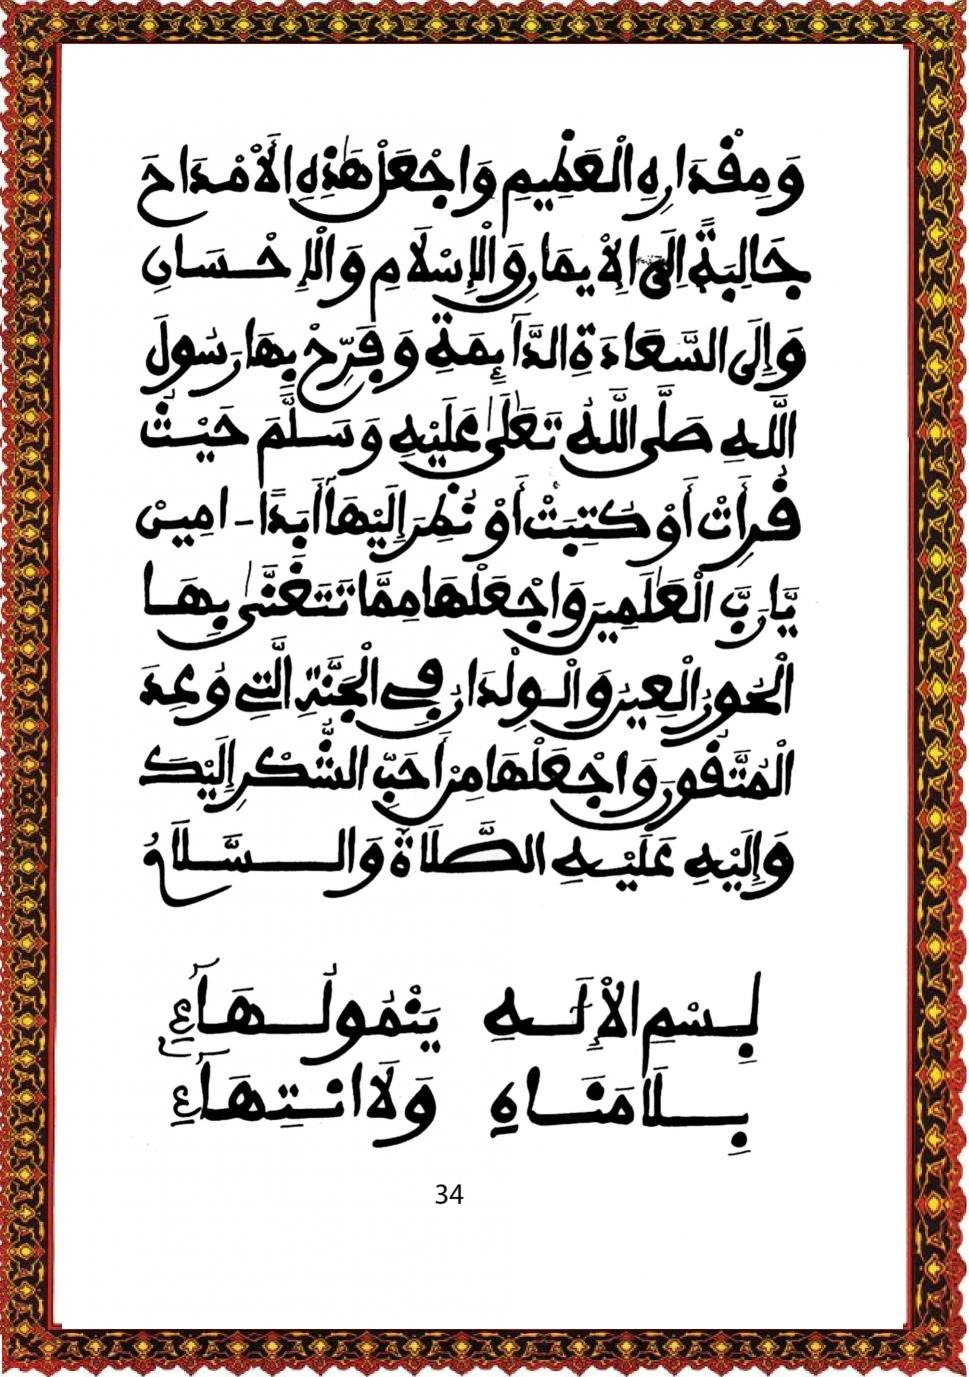 وَمِقْدَارِهِ الْعَظِيمِ وَاجْعَلْ هَٰذِهِ الْأَمْدَاحَ
جَالِبَةً إِلَى الْإِيمَانِ وَالْإِسْلَامِ وَالْإِحْسَانِ
وَإِلَى السَّعَادَةِ الدَّآئِمَةِ وَفَرِّحْ بِهَا رَسُولَ
اللَّهِ صَلَّى اللَّهُ تَعَٰلَى عَلَيْهِ وَسَلَّمَ حَيْثُ
قُرِأَتْ أَوْ كُتِبَتْ أَوْ نُظِرَ إِلَيْهَا أَبَدًا - امِينْ
يَا رَبَّ الْعَٰلَمِينَ وَاجْعَلْهَا مِمَّا تَتَغَنَّىٰ بِهَا
الْحُورُ الْعِينُ وَالْوِلْدَانُ فِي الْجَنَّةِ الَّتِي وُعِدَ
الْمُتَّقُونَ وَاجْعَلْهَا مِنْ أَحَبِّ الشُّكْرِ إِلَيْكَ
وَإِلَيْهِ عَلَيْهِ الصَّلَاةُ وَالسَّلَامُ
بِسْمِ الْإِلَٰهِ يَنْمُو لَهَآءِ
بِلَا مَنَاهِ وَلَا انْتِهَآءِ
34